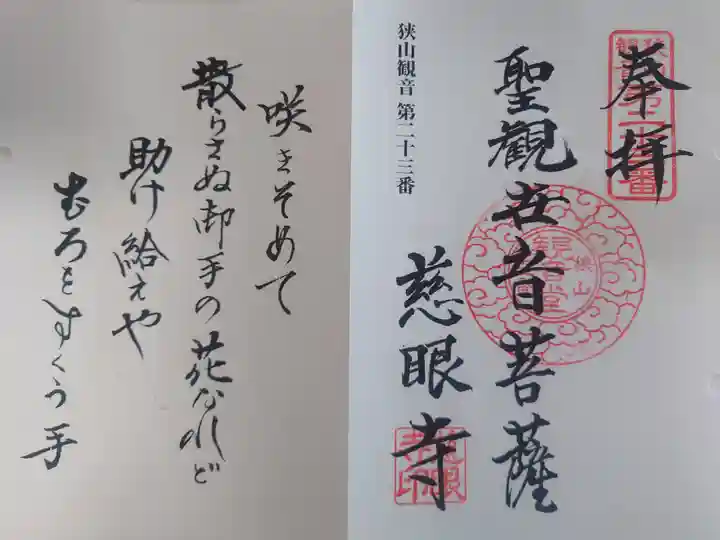 奉拝
聖観世音菩薩
慈眼寺
狭山観音 第二十三番
咲きそめて
散らさぬ御手の花なれど
助け給えや
むろをすくう手